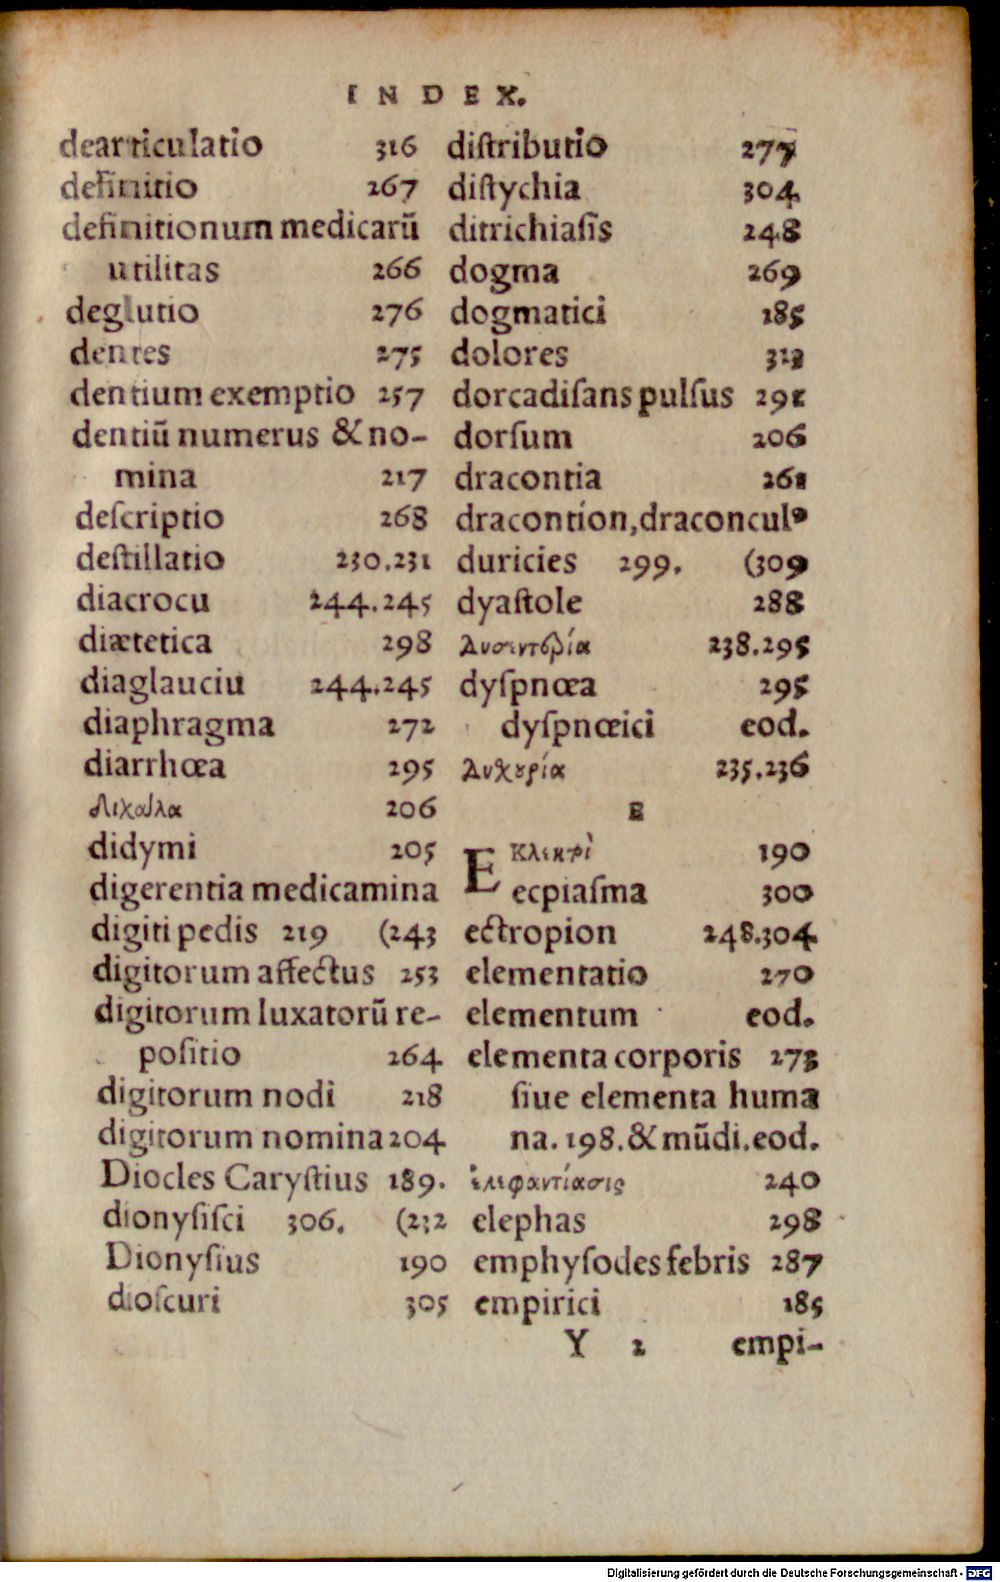 INDEX.
dearticulatio 316
definitio 267
definitionum medicarũ
utilitas 266
deglutio 276
dentes 275
dentium exemptio 257
dentiũ numerus & no-
mina 217
deſcriptio 268
deſtillatio 230.231
diacrocu 244.245
diætetica 298
diaglauciu 244.245
diaphragma 272
diarrhœa 295
206
didymi 205
digerentia medicamina
digiti pedis 219 (243
digitorum affectus 253
digitorum luxatorũ re-
poſitio 264
digitorum nodi 218
digitorum nomina 204
Diocles Caryſtius 189.
dionyſiſci 306. (232
Dionyſius 190
dioſcuri 305
diſtributio 277
diſtychia 304
ditrichiaſis 248
dogma 269
dogmatici 185
dolores 313
dorcadiſans pulſus 291
dorſum 206
dracontia 261
dracontion, draconcul⁹
duricies 299. (309
dyaſtole 288
238.295
dyſpnœa 295
dyſpnœici eod.
235.236
E
190
ecpiaſma 300
ectropion 248.304
elementatio 270
elementum eod.
elementa corporis 273
ſiue elementa huma
na. 198. & mũdi. eod.
ἐλεφαντίασις 240
elephas 298
emphyſodes febris 287
empirici 185
Y 2 empi-
Digitalisierung gefördert durch die Deutsche Forschungsgemeinschaft - DFG